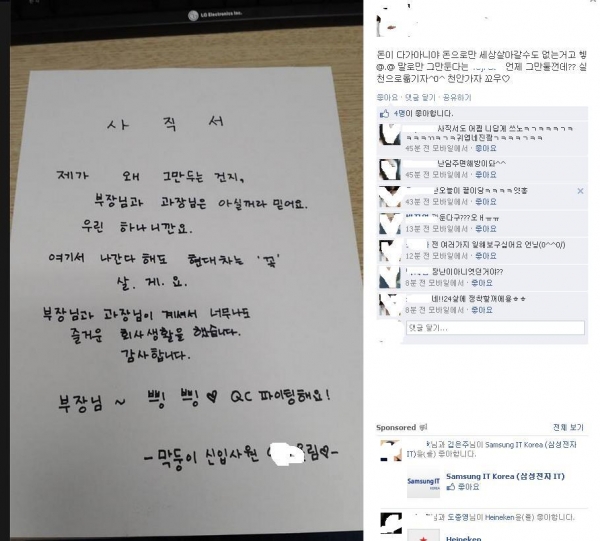 LG Electronics Inc.
사 직 서
제가 왜 그만두는 건지,
부장님과 과장님은 아실꺼라 믿어요.
우린 하나니깐요.
여기서 나간다 해도 현대차는 '꼭'
살. 게. 요.
부장님과 과장님이 계셔서 너무나도
즐거운 회사생활을 했습니다.
감사합니다.
부장님 ~ 쁑! 쁑! ♥ QC 파이팅해요!
- 막둥이 신입사원 림♡-
돈이 다가아니야 돈으로만 세상살아갈수도 없는거고 빻
@.@ 말로만 그만둔다는 언제 그만둘껀데?? 실
천으로옮기자^0^ 천안가자 꼬우♡
좋아요 · 댓글 달기 · 공유하기
4명이 좋아합니다.
사직서도 어쩜 니답게 쓰노ㅋㄱㅋㅋㄱㅋㄱ
귀엽네진짬ㅋㄱㅋㄱㅋㄱㅋ
45분 전 모바일에서 · 좋아요
난담주면해방이다^^
45분 전 모바일에서 · 좋아요
난오늘이 끝이담ㅋㅋㅋㅋ얏홍
43분 전 모바일에서 · 좋아요
둔다구???오ㅐㅠㅠ
13분 전 모바일에서 · 좋아요
전 여러가지 일해보구십어요 언닝(0^^0/)
12분 전 모바일에서 · 좋아요
장난이아니엿던거야??
8분 전 모바일에서 · 좋아요
네!!24살에 정착할꺼에용ㅎㅎ
8분 전 모바일에서 · 좋아요
댓글 달기...
Sponsored
전체 보기
님과 김은주님이 Samsung IT Korea (삼성전자
IT)을(를) 좋아합니다.
Samsung IT Korea (삼성전자 IT)
좋아요
님과 도충영님이 Heineken을(를) 좋아합니다.
Heineken